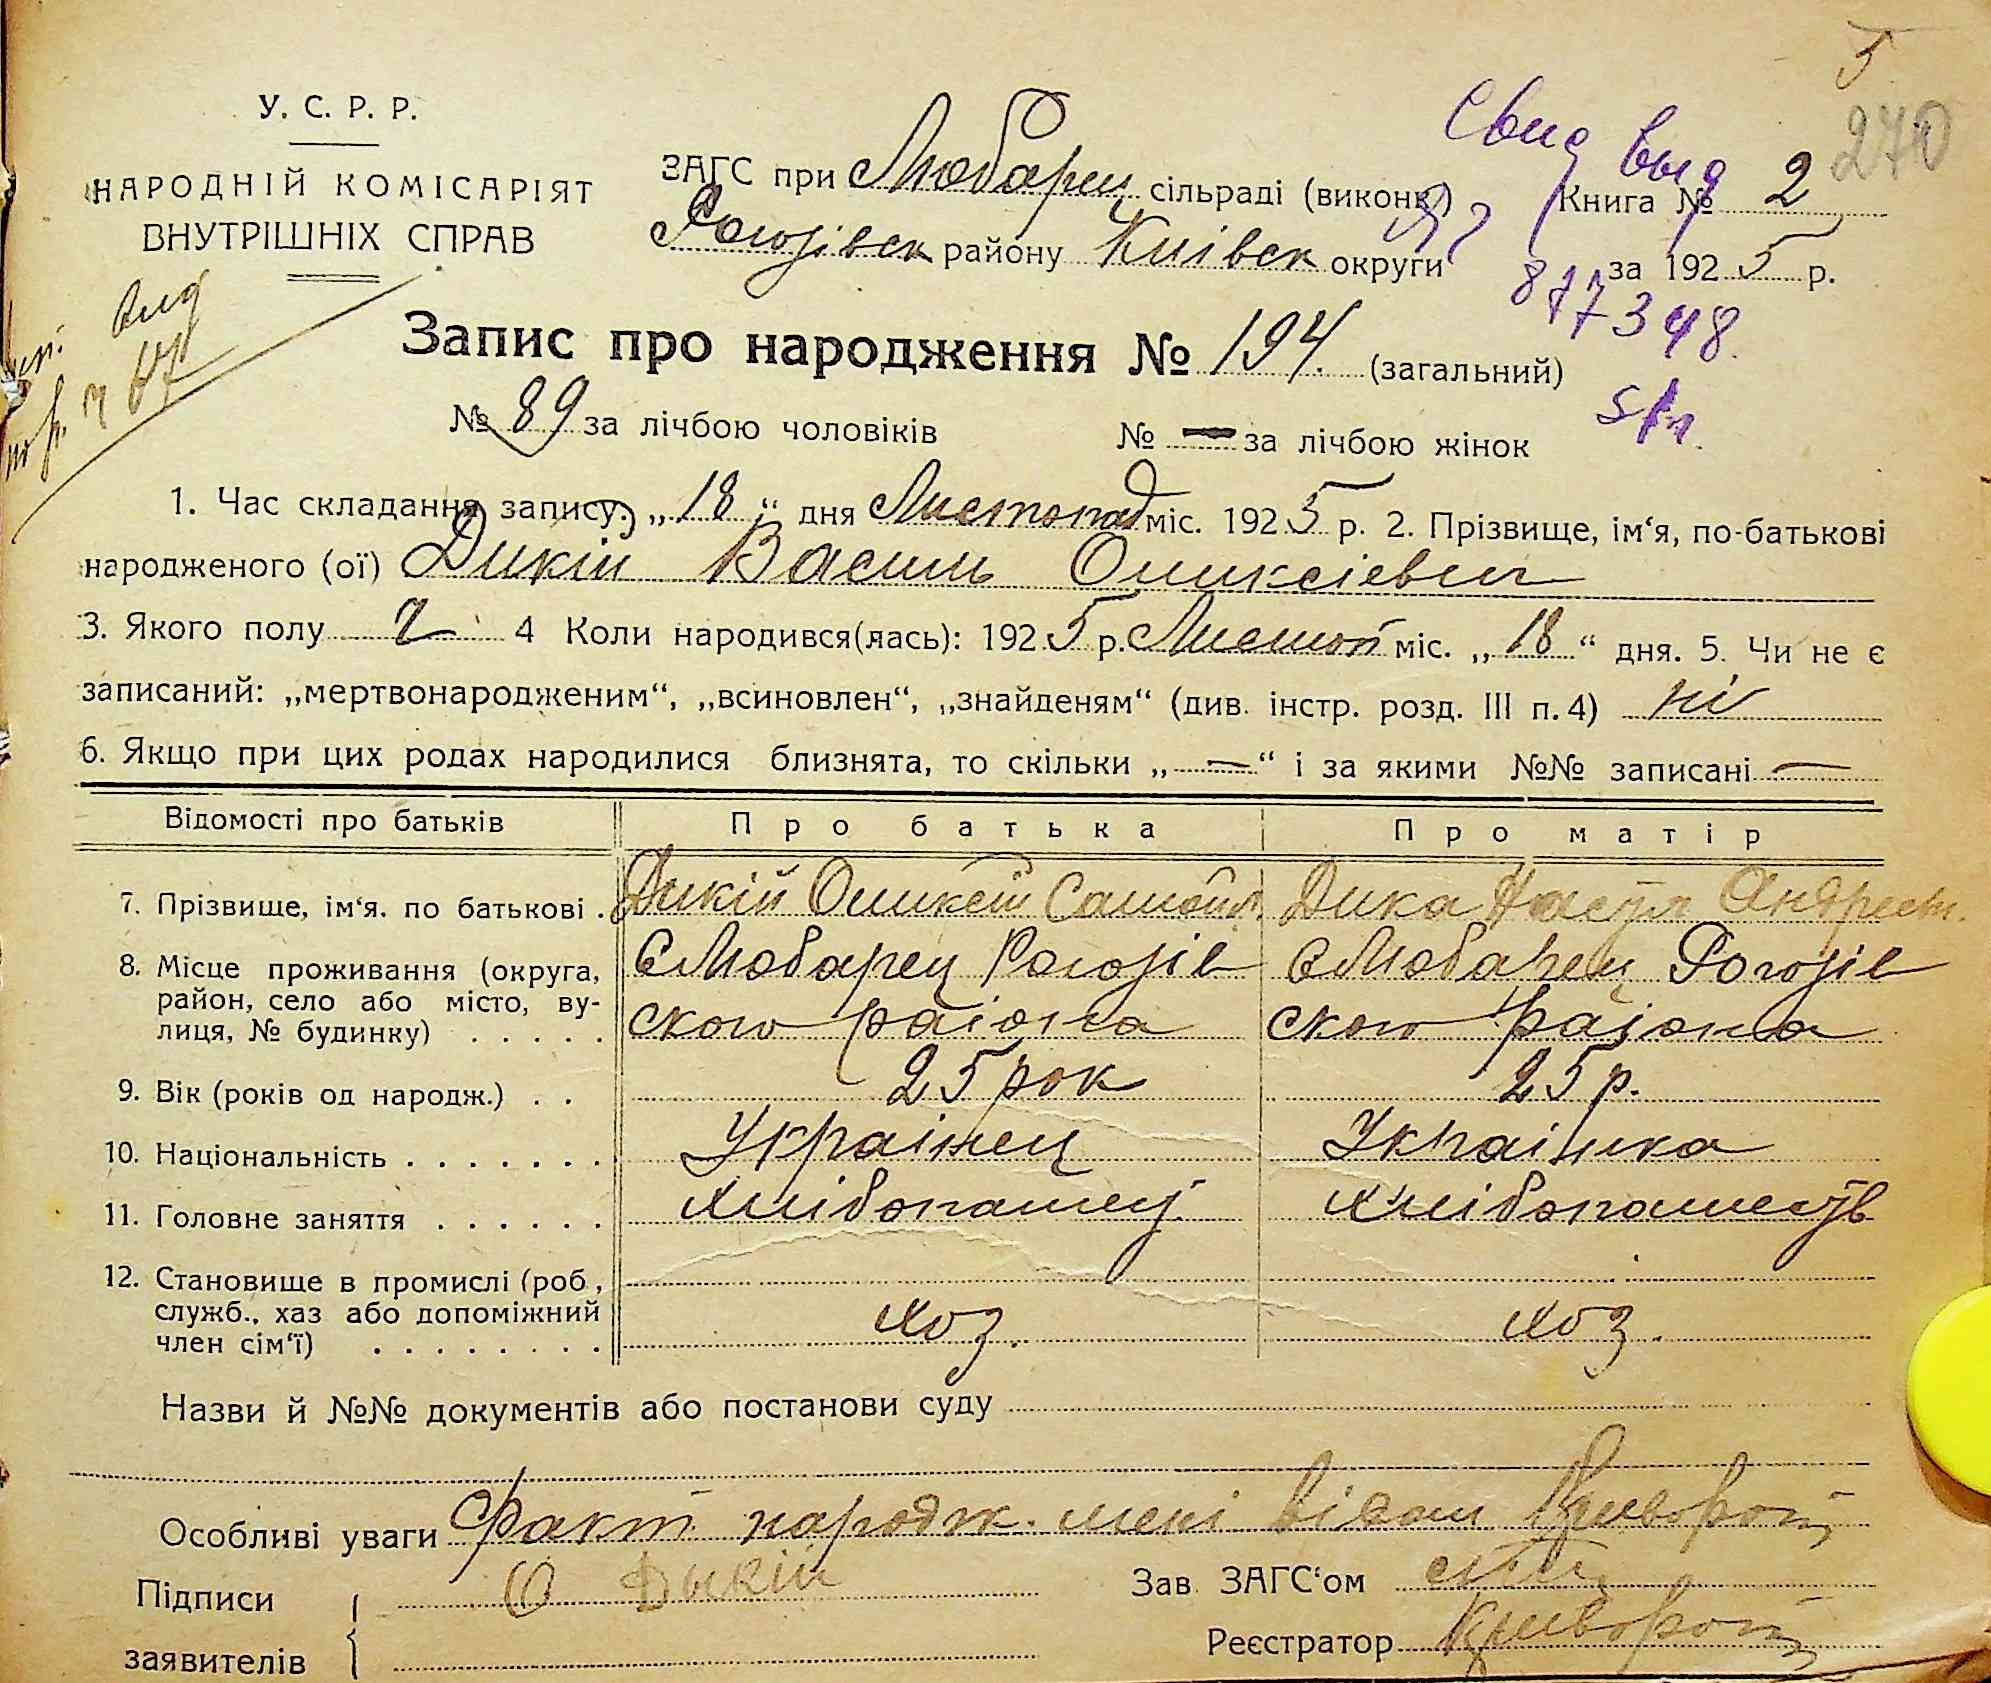 5
270
У. С. Р. Р.
НАРОДНІЙ КОМІСАРІЯТ
ВНУТРІШНІХ СПРАВ
ЗАГС при Любарец сільраді (виконк)
Рогозівск району Київск округи
Свид выд
877348
Книга № 2
за 1925 р.
Запис про народження № 194. (загальний)
№ 89 за лічбою чоловіків № — за лічбою жінок
1. Час складання запису: „18“ дня Листопад міс. 1925 р. 2. Прізвище, ім‘я, по-батькові
народженого (ої) Дикій Василь Оликсієвич
3. Якого полу ч 4 Коли народився(лась): 1925 р. Листоп міс. „18“ дня. 5. Чи не є
записаний: „мертвонародженим“, „всиновлен“, „знайденям“ (див. інстр. розд. III п. 4) ні
6. Якщо при цих родах народилися близнята, то скільки „—“ і за якими №№ записані —
Відомості про батьків Про батька Про матір
7. Прізвище, ім‘я. по батькові . Дикій Оликсій Самойл. Дика Андреєв.
8. Місце проживання (округа, район, село або місто, вулиця, № будинку) . . . . .
с Любарец Рогозів
ского району
с Любарец Рогозів
ского району
9. Вік (років од народж.) . . 25 рок 25 р.
10. Національність . . . . . . . Українец Українка
11. Головне заняття . . . . . . Хлібопашец
12. Становище в промислі (роб., служб., хаз або допоміжний член сім‘ї) . . . . . . . . хоз. хоз.
Назви й №№ документів або постанови суду
Особливі уваги Факт народж. мені відом
Підписи
заявителів
О Дыкій
Зав ЗАГС‘ом
Реєстратор